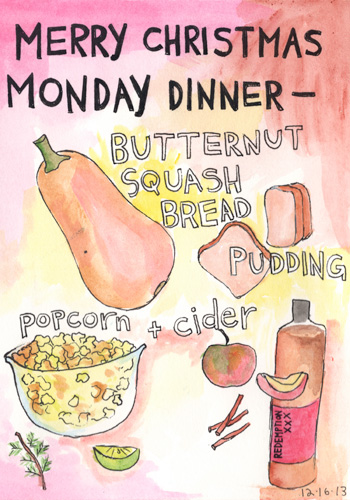 MERRY CHRISTMAS
MONDAY DINNER—
BUTTERNUT
SQUASH
BREAD
PUDDING
popcorn + cider
REDEMPTION
XXX
12·16·13